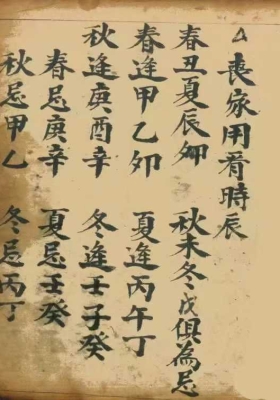 △喪家用看時辰
春丑夏辰 秋未冬戌俱為忌
春逢甲乙卯 夏逢丙午丁
秋逢庚酉辛 冬逢壬子癸
春忌庚辛 夏忌壬癸
秋忌甲乙 冬忌丙丁